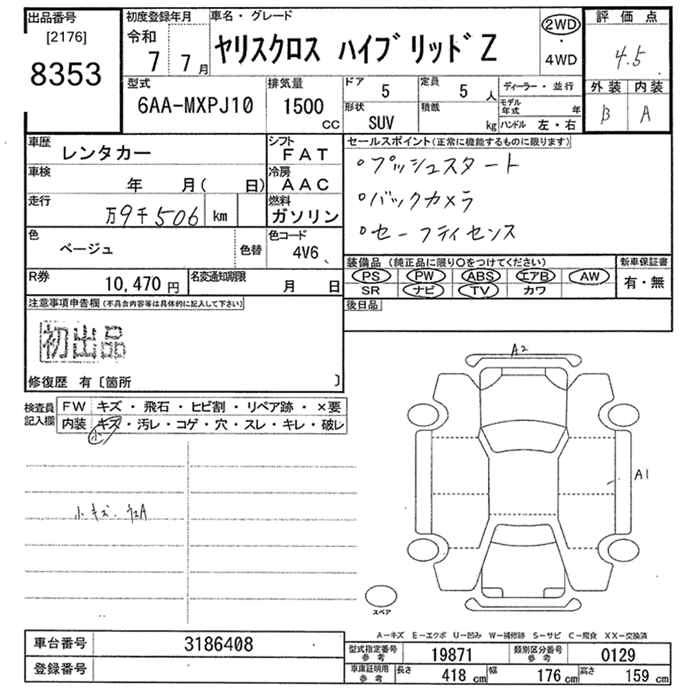 出品番号
[2176]
8353
初度登録年月
令和
7 7月
車名・グレード
ヤリスクロス ハイブリッドZ
2WD
・
4WD
評価点
4.5
外装 内装
B A
型式
6AA-MXPJ10
排気量
1500
CC
ドア
5
定員
5 人
形状
SUV
積載
kg
ディーラー・並行
モデル年式 年
ハンドル 左・右
車歴
レンタカー
シフト
FAT
車検
年 月( 日)
冷房
AAC
走行
万9千506 km
燃料
ガソリン
色
ベージュ
色替
色コード
4V6
R券
10,470 円
名変通知期限
月 日
セールスポイント(正常に機能するものに限ります)
・プッシュスタート
・バックカメラ
・セーフティセンス
装備品(純正品に限り○をつけてください)
PS PW ABS エアB AW
SR ナビ TV カワ
新車保証書
有・無
後日品
注意事項申告欄(不具合内容等は具体的に記入して下さい)
初出品
修復歴 有〔箇所 〕
検査員記入欄
FW キズ・飛石・ヒビ割・リペア跡・×要
内装 キズ・汚レ・コゲ・穴・スレ・キレ・破レ
小
小キズ.
A2
A1
スペア
A−キズ E−エクボ U−凹み W−補修跡 S−サビ C−腐食 XX−交換済
車台番号 3186408
登録番号
型式指定番号参考 19871
類別区分番号参考 0129
車庫証明用参考 長さ 418 cm 幅 176 cm 高さ 159 cm